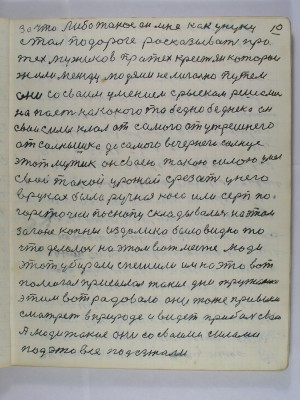 за что либо такое он мне как унуку 10
стал по дороге росказывать про
тех мужиков про тех крестян которыи
жили между людями не легким путем
они со своим умением с рыском решимы
на пает на какого та бедно беднека он
свои силы клал от самого от утрешнего
от солнышка до самого вечернего солнце
этот мужик он своею такою силою
свой такой урожай срезать у него
в руках была ручная коса или серп по
горсточки по снопу складывали на том
загоне копны из далика было видно то
что делалось на этом вот месте люди
этот убирали спешили им на это вот
помогал пришлося такия дни
этим вот радовало они тоже пришли
сматреть в природе и видеть прибыл свой
А люди такие они со своими силами
под это все подезжали